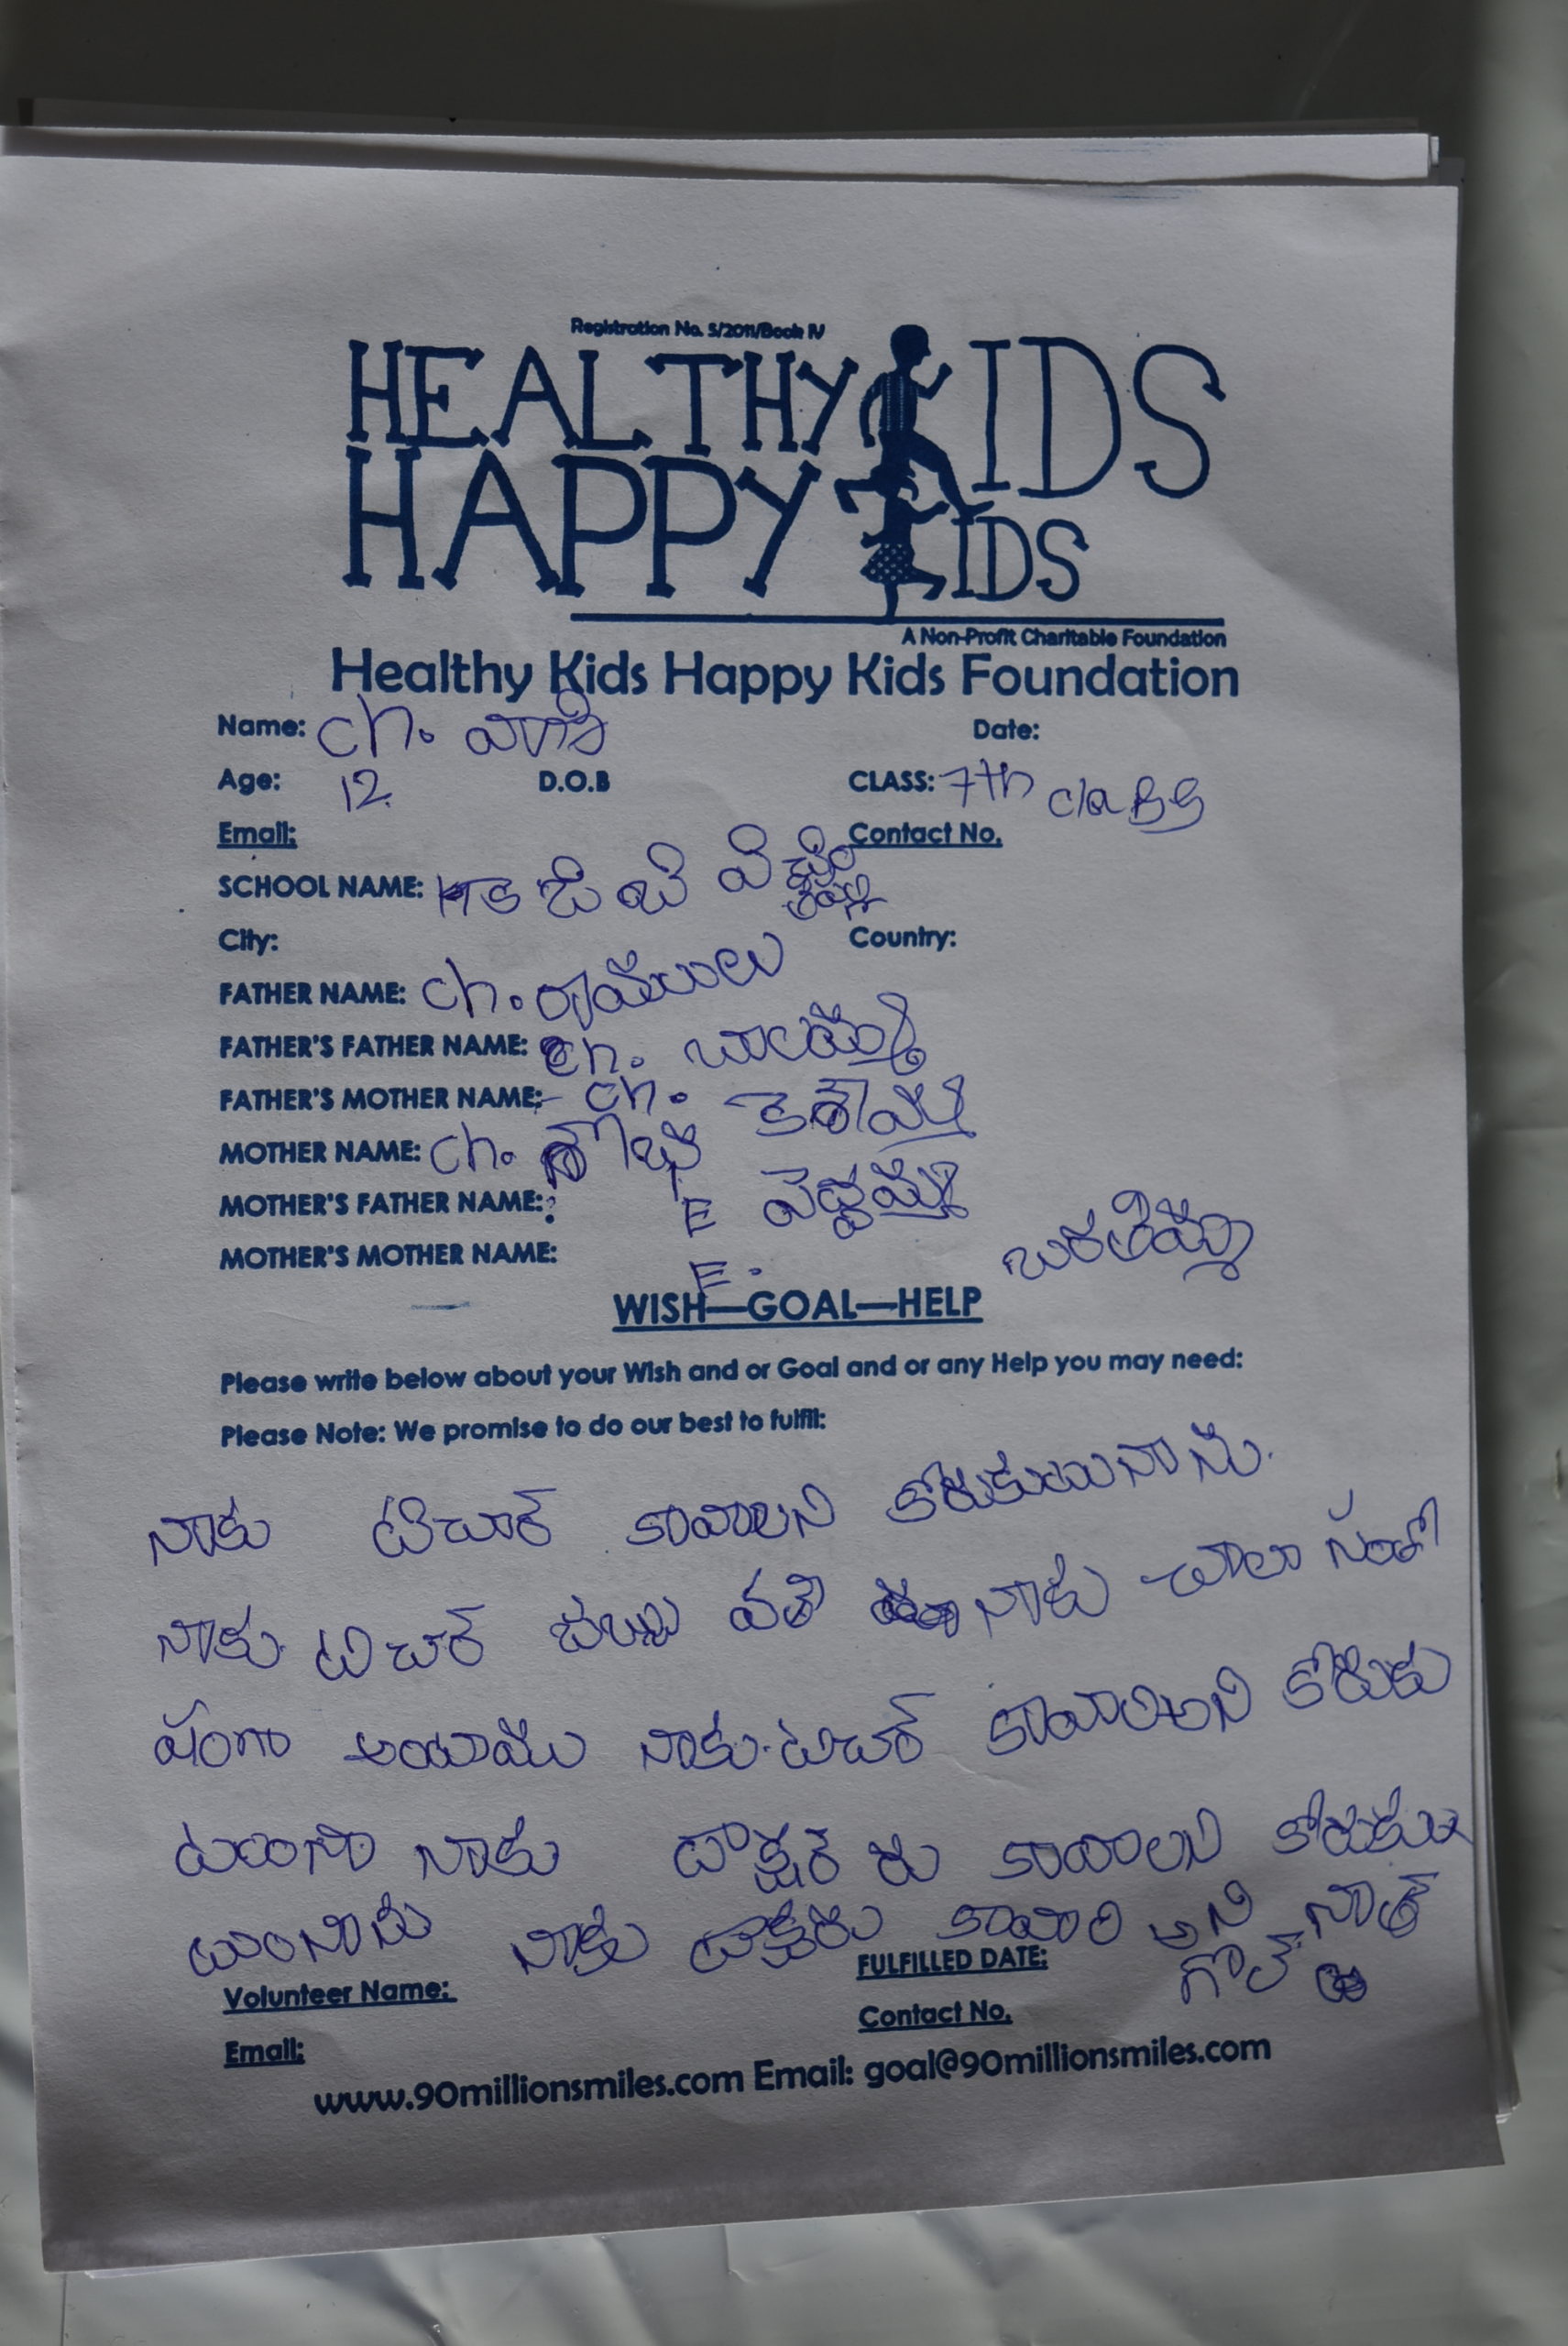 Registration No. 5/2011/Book IV
HEALTHY KIDS
HAPPY KIDS
A Non-Profit Charitable Foundation
Healthy Kids Happy Kids Foundation
Name: ch. వాని Date:
Age: 12 D.O.B CLASS: 7th class
Email: Contact No.
SCHOOL NAME: జి బి వి
City: Country:
FATHER NAME: ch. రాములు
FATHER'S FATHER NAME: ch. బాలయ్య
FATHER'S MOTHER NAME: ch. కెశమ్మ
MOTHER NAME: ch. శోభ
MOTHER'S FATHER NAME: E పెద్దమ్మ
MOTHER'S MOTHER NAME: E. బరతమ్మ
WISH—GOAL—HELP
Please write below about your Wish and or Goal and or any Help you may need:
Please Note: We promise to do our best to fulfil:
నాకు టిచార్ కావాలని కోరుకుటునాను.
నాకు టిచర్ జబ్బు వతె నాకు చాలా సంతో
షంగా అంటాము నాకు టిచర్ కావాలని కోరుకు
టుంగా నాకు డాక్టర్ రు కావాలని కోరుకు
టుంనాను నాకు డాక్టరు కావాలి అని నా
గోల్
Volunteer Name: FULFILLED DATE:
Email: Contact No.
www.90millionsmiles.com Email: goal@90millionsmiles.com